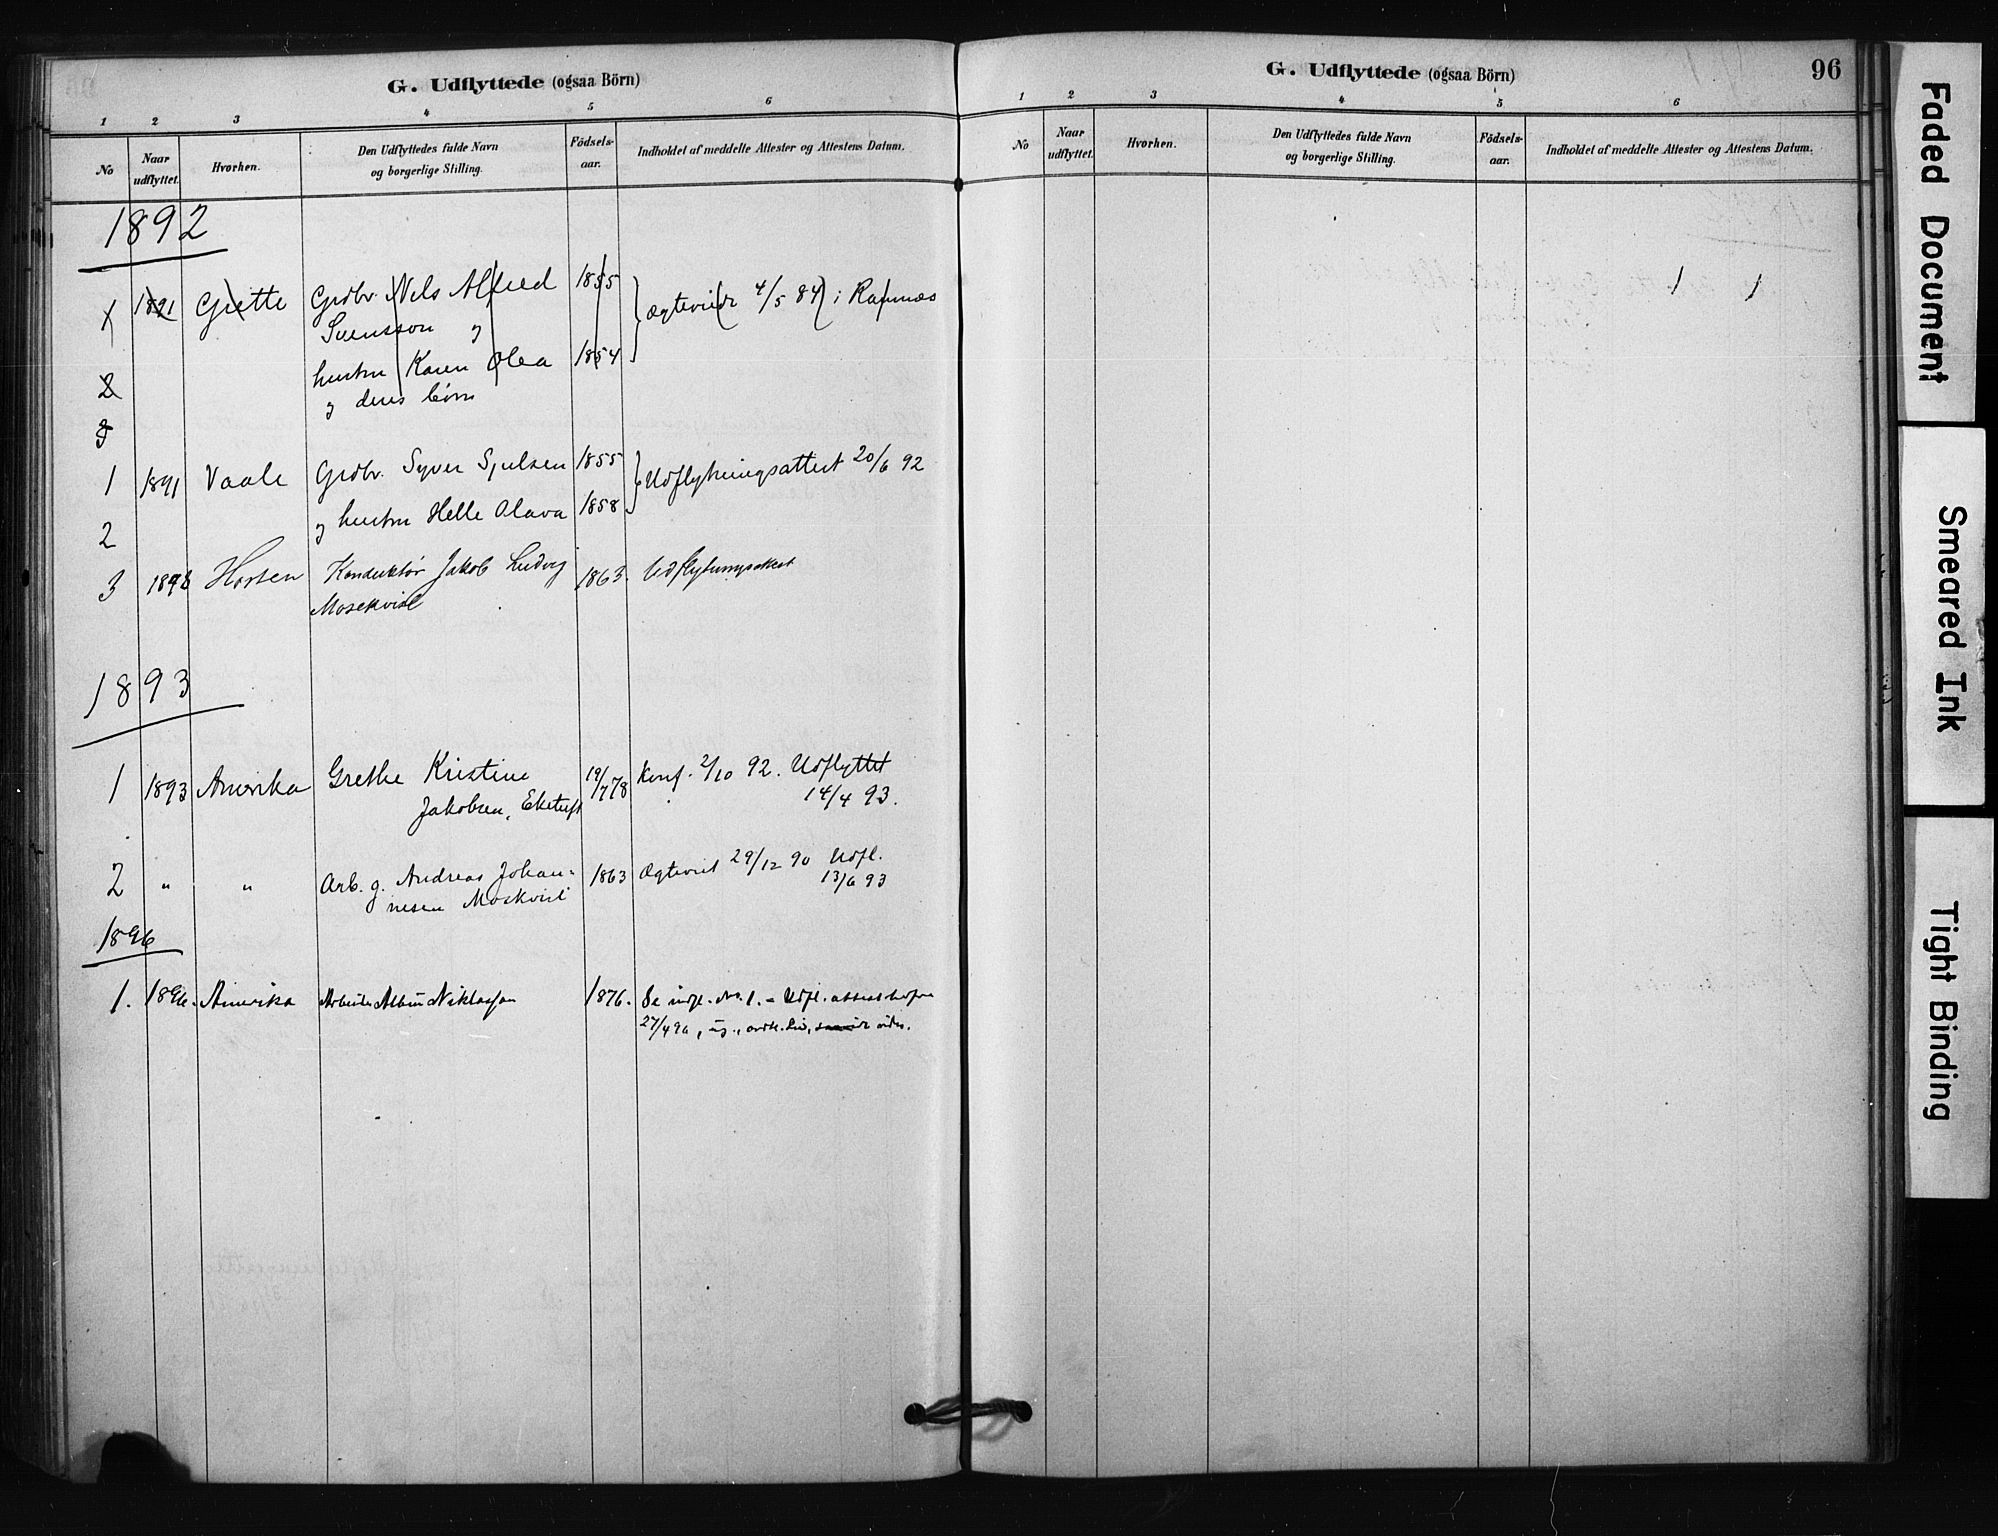 G. Udflyttede (ogsaa Börn)
1 2 3 4 5 6
No Naar udflyttet. Hvorhen. Den Udflyttedes fulde Navn og borgerlige Stilling. Födsels-aar. Indholdet af meddelte Attester og Attestens Datum.
1892
1 1891 Grette Grdbr. Nels Alfred 1855 Ægteviede 4/5 84 i Ramnæs
Svensson og
2 hustru Karen Olea 1854
og deres börn
3
1 1891 Vaale Grdbr. Syver Sjulsen 1855 Udflytningsattest 20/6 92
2 og hustru Helle Olava 1858
3 1893 Horten Konduktör Jakob Ludvig 1863. Udflytningsattest
Mosekvist
1893
1 1893 Amerika Grethe Kristine 19/7 78 Konf. 2/10 92. Udflyttet
Jakobsen, 14/4 93.
2 " " Arb. g. Andreas Johan- 1863 Ægteviet 29/12 90 Udfl.
nesen Moskvist 13/6 93
1896
1. 1896. Amerika Arbeider Albin Niklasson 1876. Se indfl. No. 1. - Udfl. attest
27/4 96, ug.,
G. Udflyttede (ogsaa Börn) 96
1 2 3 4 5 6
No Naar udflyttet. Hvorhen. Den Udflyttedes fulde Navn og borgerlige Stilling. Födsels-aar. Indholdet af meddelte Attester og Attestens Datum.
Faded Document
Smeared Ink
Tight Binding